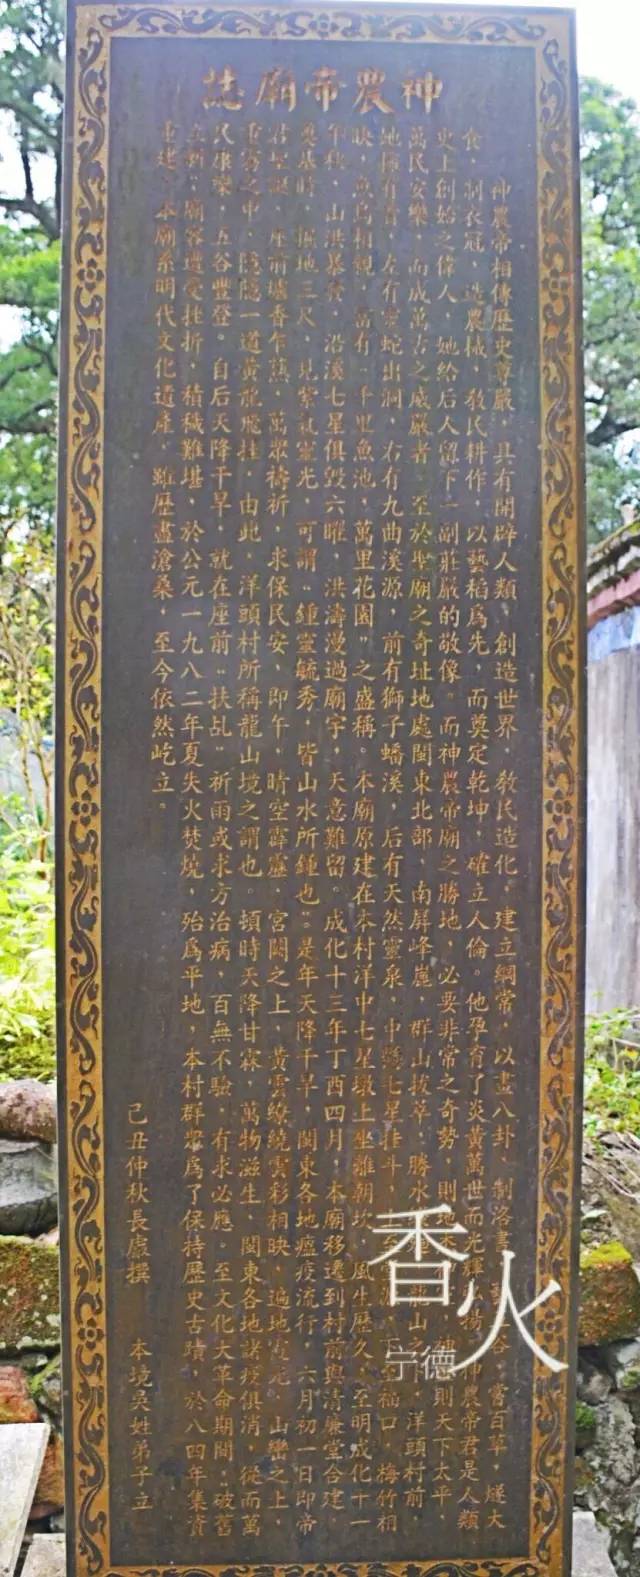 神農帝廟誌
神農帝相傳歷史尊嚴，具有開辟人類，創造世界，教民造化，建立綱常，以畫八卦、制洛書，谷，嘗百草，燧火
食，制衣冠，造農械，教民耕作，以藝稻爲先，而奠定乾坤，確立人倫。他孕育了炎黃萬世而光輝，神農帝君是人類
史上創始之偉人，她給后人留下一副莊嚴的敬像。而神農帝廟之勝地，必要非常之奇勢，則地，則天下太平，
萬民安樂，而成萬古之威嚴者。至於聖廟之奇址地處閩東北部，南屏峰巍，群山拔萃，勝水，龍山，洋頭村前，
地，左有蛇出洞，右有九曲溪源，前有獅子蟠溪，后有天然靈泉，中懸七星挂斗，口，梅竹相
映，魚鳥相親，富有“千里魚池，萬里花園”之盛稱。本廟原建在本村洋中七星墩上坐離朝坎，風生歷久，至明成化十一
年秋，山洪暴發，沿溪七星俱毀六曜，洪濤漫過廟宇，天意難留。成化十三年丁酉四月，本廟移遷到村前與清廉堂合建，
奠基時，掘地三尺，見紫氣靈光，可謂“鍾靈毓秀，皆山水所鍾也”。是年天降干旱，閩東各地瘟疫流行，六月初一日即帝
君聖誕，座前爐香乍爇，萬眾禱祈，求保民安，即午，晴空霹靂，宮闕之上，黃雲繚繞霞彩相映，遍地，山巒之上，
重霧之中，隱隱一道黃龍飛挂，由此，洋頭村所稱龍山境之謂也。頃時天降甘霖，萬物滋生，閩東各地諸疫俱消，從而萬
民康樂，五谷豐登。自后天降干旱，就在座前“扶乩”祈雨或求方治病，百無不驗，有求必應。至文化大革命期間，“破舊
立新”，廟容遭受挫折，積穢難堪，於公元一九八二年夏失火焚燒，殆爲平地，本村群眾爲了保持歷史古蹟，於八四年集資
重建。本廟系明代文化遺產，雖歷盡滄桑，至今依然屹立。
己丑仲秋長慮撰　本境吳姓弟子立
香火
宁德